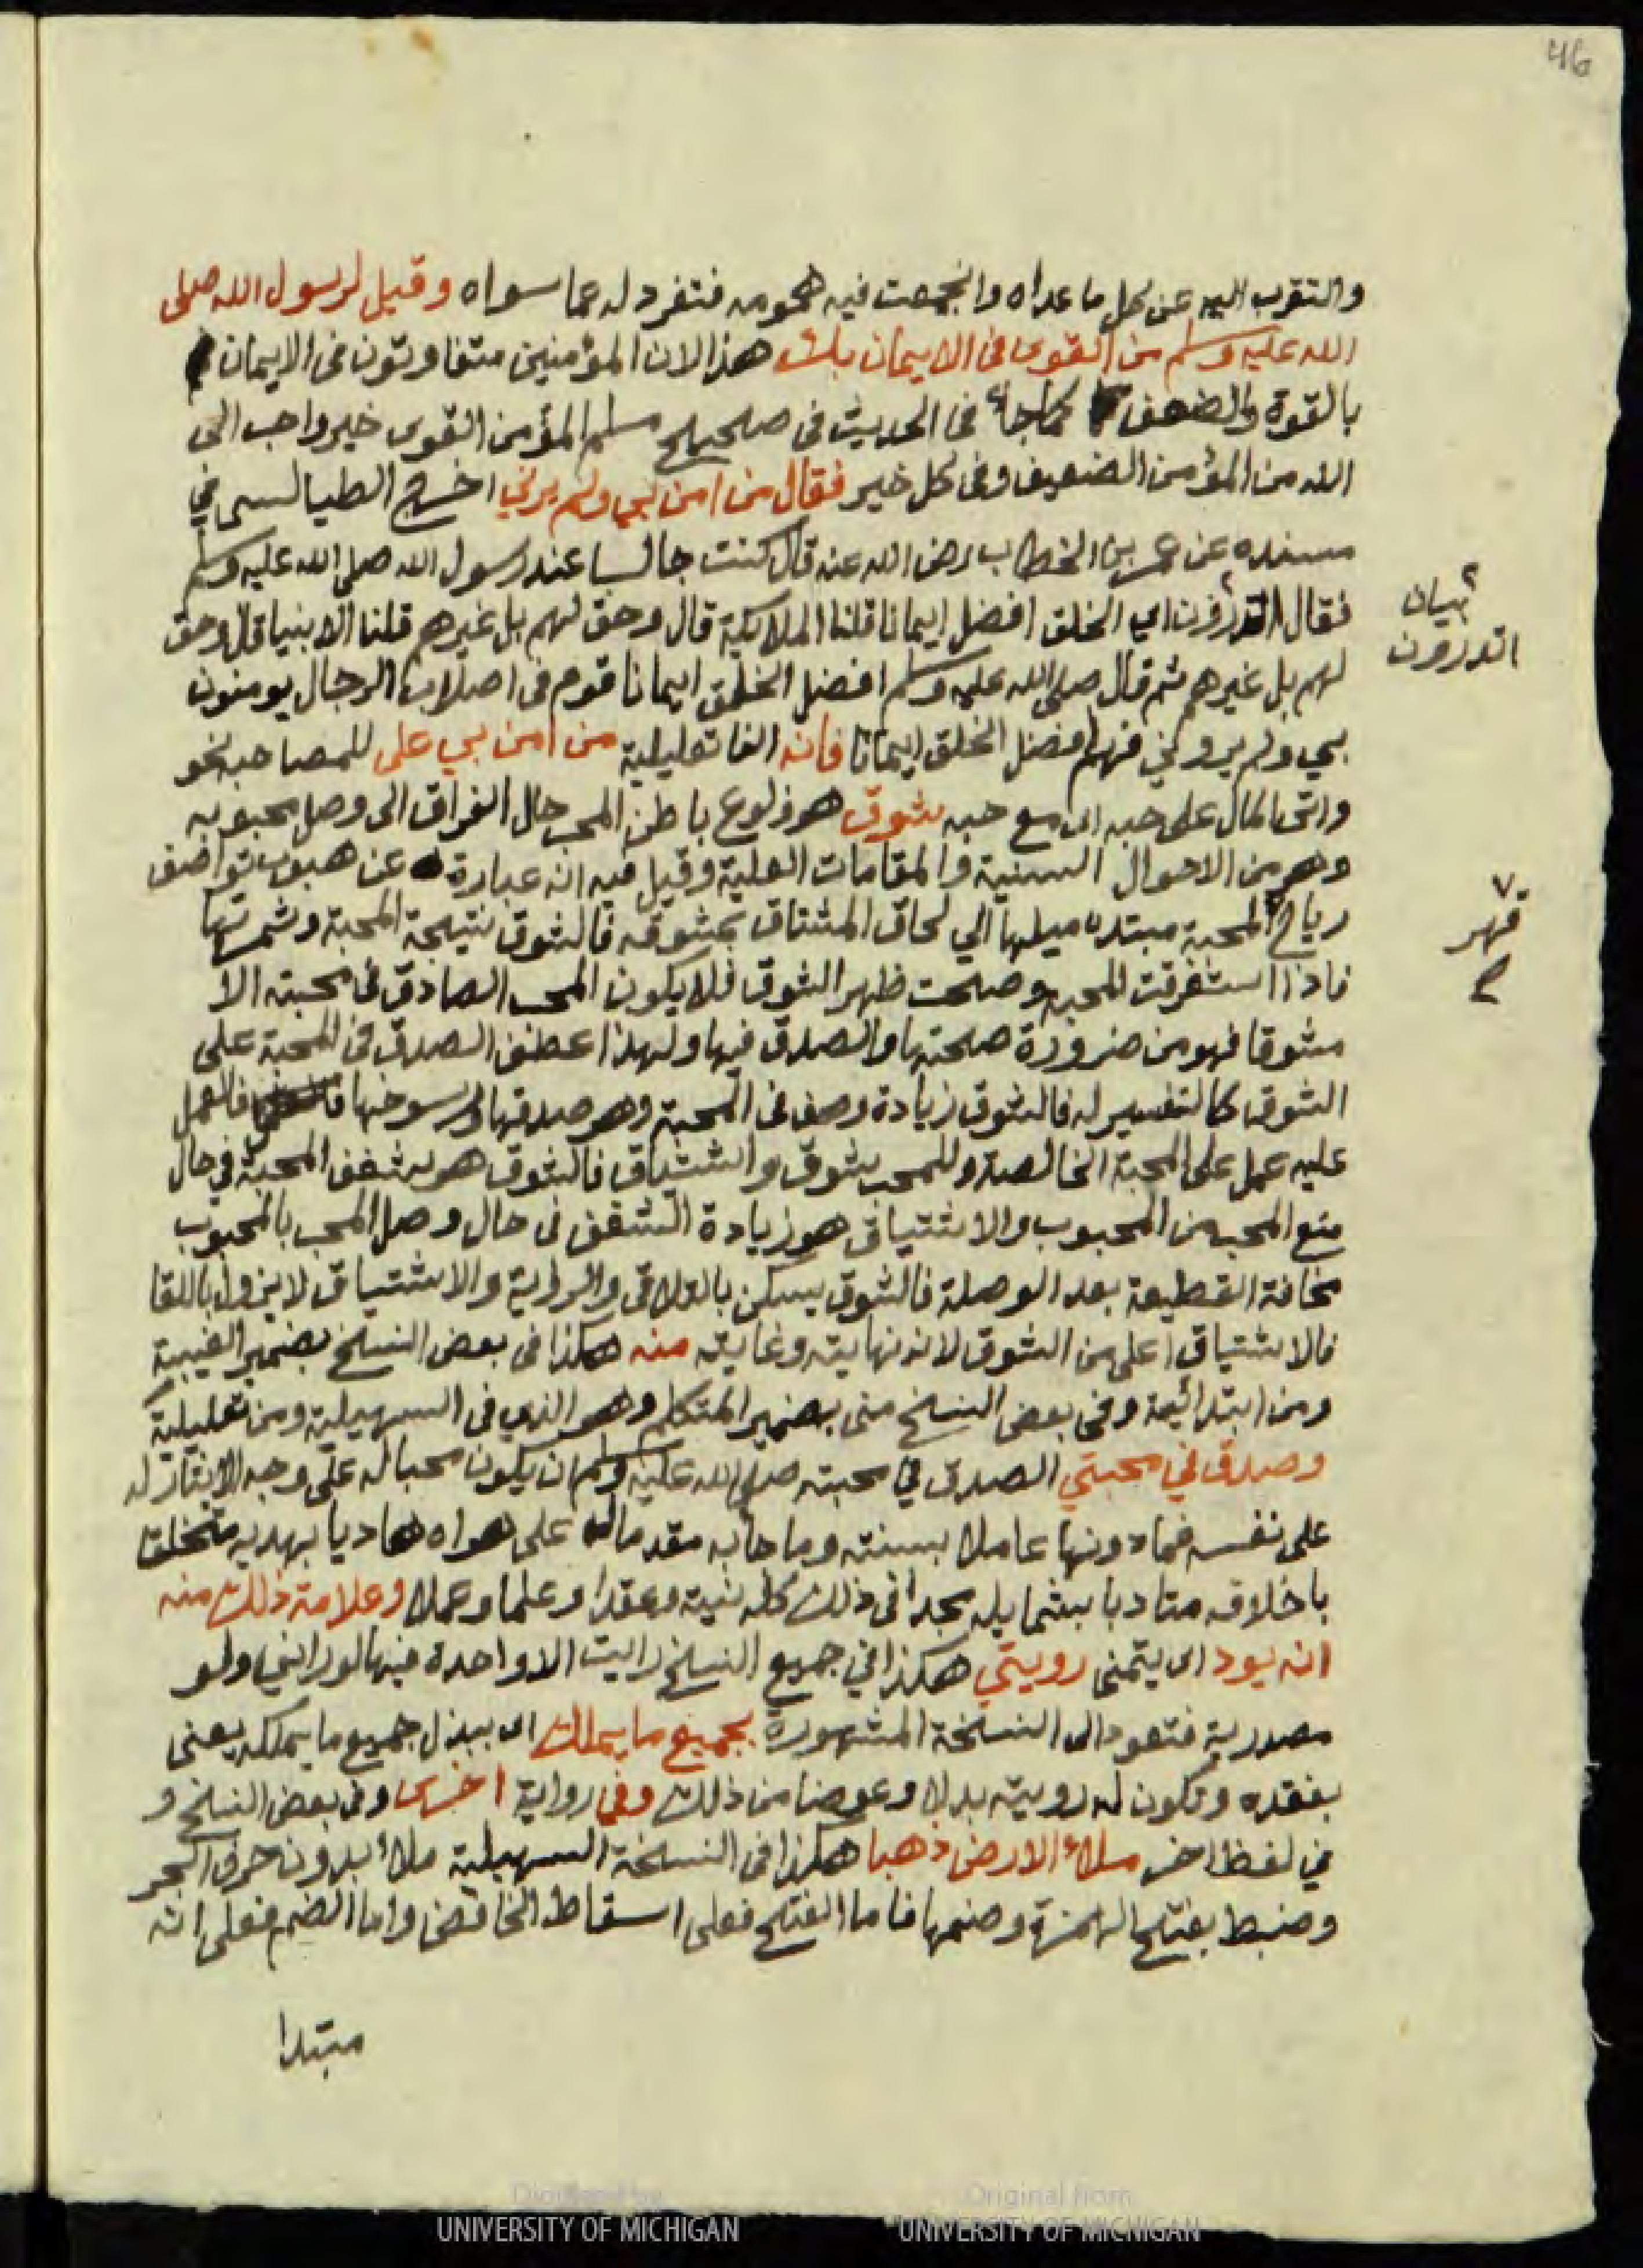 46
والتقرب اليه عن كل ما عداه وانجمعت فيه همومه فتفرد له عما سواه وقيل لرسول الله صلى
الله عليه وسلم من القوى فى الايمان بك هذا لان المؤمنين متفاوتون فى الايمان
بالقوة والضعف كما جاء فى الحديث فى صحيح مسلم المؤمن القوى خير واحب الى
الله من المؤمن الضعيف وفى كل خير فقال من امن بي ولم يرني اخرج الطيالسى في
مسنده عن عمر بن الخطاب رضى الله عنه قال كنت جالسا عند رسول الله صلى الله عليه وسلم
فقال اتدرون اي الخلق افضل ايمانا قلنا الملايكة قال وحق لهم بل غيرهم قلنا الانبيا قال وحق
بيان
اتدرون
لهم بل غيرهم ثم قال صلى الله عليه وسلم افضل الخلق ايمانا قوم فى اصلاب الرجال يومنون
بي ولم يروني فهم افضل الخلق ايمانا فانه الفا تعليلية من امن بي على للمصاحبة نحو
واتى المال على حبه اى مع حبه شوق هو ولوع باطن المحب حال الفراق الى وصل محبوبه
وهو من الاحوال السنية والمقامات العلية وقيل فيه انه عبارة عن هبوب عواصف
قهر
رياح المحبة ميلها الي لحاق المشتاق بمشوقه فالشوق نتيجة المحبة وثمرتها
فاذا استغرقت المحبة وصحت ظهر الشوق فلا يكون المحب الصادق فى محبته الا
مشوقا فهو من ضرورة صحتها والصدق فيها ولهذا عطف الصدق فى المحبة على
الشوق كالتفسير له فالشوق زيادة وصف فى المحبة وهو صدقها ورسوخها فالعمل
عليه عمل على المحبة الخالصة وللمحب شوق واشتياق فالشوق هو شغف المحبة في حال
منع المحب من المحبوب والاشتياق هو زيادة الشغف فى حال وصل المحب بالمحبوب
مخافة القطيعة بعد الوصلة فالشوق يسكن بالتلاقى والروية والاشتياق لا يزول باللقا
فالاشتياق اعلى من الشوق لانه نهايته وغايته منه هكذا فى بعض النسخ بضمير الغيبة
ومن ابتدائية وفى بعض النسخ منى بضمير المتكلم وهو الذي فى السهيلية ومن تعليلية
وصدق في محبتي الصدق في محبته صلى الله عليه وسلم ان يكون محبا له على وجه الايثار له
على نفسه فما دونها عاملا بسنته وما جا به مقدما له على هواه هاديا بهديه متخلقا
باخلاقه متادبا بشمايله مجدا فى ذلك كله نية وعقدا وعلما وعملا وعلامة ذلك منه
انه يود اى يتمنى رويتي هكذا في جميع النسخ رايت الا واحدة فيها لو رانى ولو
مصدرية فتعود الى النسخة المشهورة بجميع ما يملك اى ببذل جميع ما يملكه يعنى
بفقده وتكون له رويته بدلا وعوضا من ذلك وفي رواية اخرى وفى بعض النسخ و
في لفظ اخر ملاء الارض ذهبا هكذا فى النسخة السهيلية ملاء بدون حرف الجر
وضبط بفتح الهمزة وضمها فاما الفتح فعلى اسقاط الخافض واما الضم فعلى انه
مبتدا
Digitized by
UNIVERSITY OF MICHIGAN
Original from
UNIVERSITY OF MICHIGAN